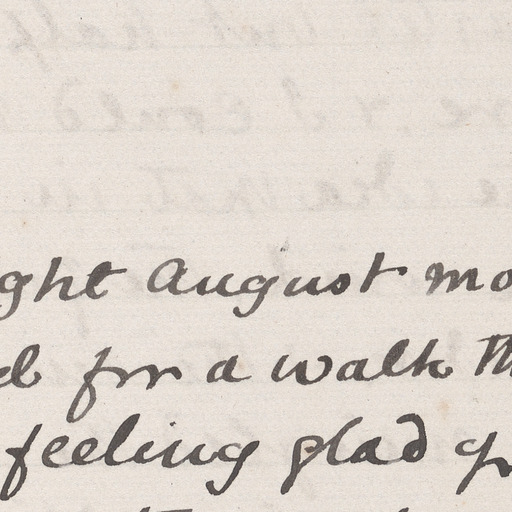 ght August mo
d for a walk th
feeling glad of